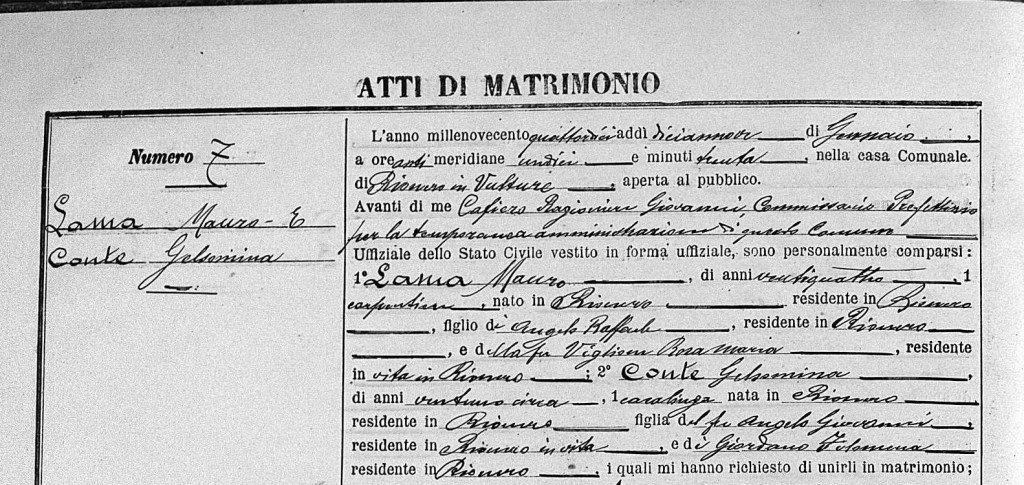 ATTI DI MATRIMONIO
Numero 7
Lama Mauro E
Conte Gelsomina
L'anno millenovecento quattordici addì diciannove di Gennaio,
a ore anti meridiane undici e minuti trenta, nella casa Comunale.
di Rionero in Vulture, aperta al pubblico.
Avanti di me Cafiero Ragioniere Giovanni, Commissario Prefettizio
per la temporanea amministrazione di questo Comune
Uffiziale dello Stato Civile vestito in forma uffiziale, sono personalmente comparsi:
1º Lama Mauro, di anni ventiquattro, 1
carpentiere, nato in Rionero residente in Rionero
, figlio di Angelo Raffaele, residente in Rionero
, e della fu Viglioni Rosa Maria, residente
in vita in Rionero; 2º Conte Gelsomina,
di anni ventuno circa, 1 casalinga nata in Rionero,
residente in Rionero figlia del fu Angelo Giovanni,
residente in Rionero in vita, e di Giordano Filomena
residente in Rionero, i quali mi hanno richiesto di unirli in matrimonio;